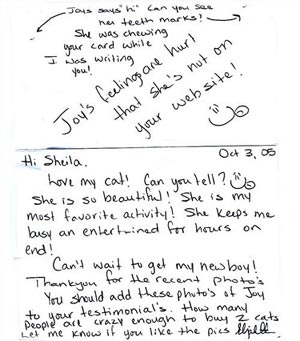 Joys says "hi" can you see
her teeth marks!
She was chewing
your card while
I was writing
you!
Joy's feelings are hurt
that she's not on
your web site!
Hi Sheila.
Oct 3, 05
Love my cat! Can you tell?
She is so beautiful! She is my
most favorite activity! She keeps me
busy an entertained for hours on
end!
Can't wait to get my new boy!
Thankyou for the recent photo's
You should add these photo's of Joy
to your testimonial's. How many
people are crazy enough to buy 2 cats
Let me know if you like the pics